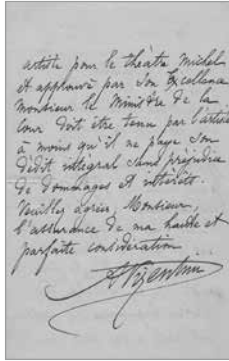 artiste pour le théâtre Michel
et approuvé par Son Excellence
Monsieur le Ministre de la
Cour doit être tenu par l'artiste
à moins qu'il ne paye son
dédit intégral sans préjudice
de dommages et intérêts.
Veuillez agréer, Monsieur,
l'assurance de ma haute et
parfaite considération
AVizentini